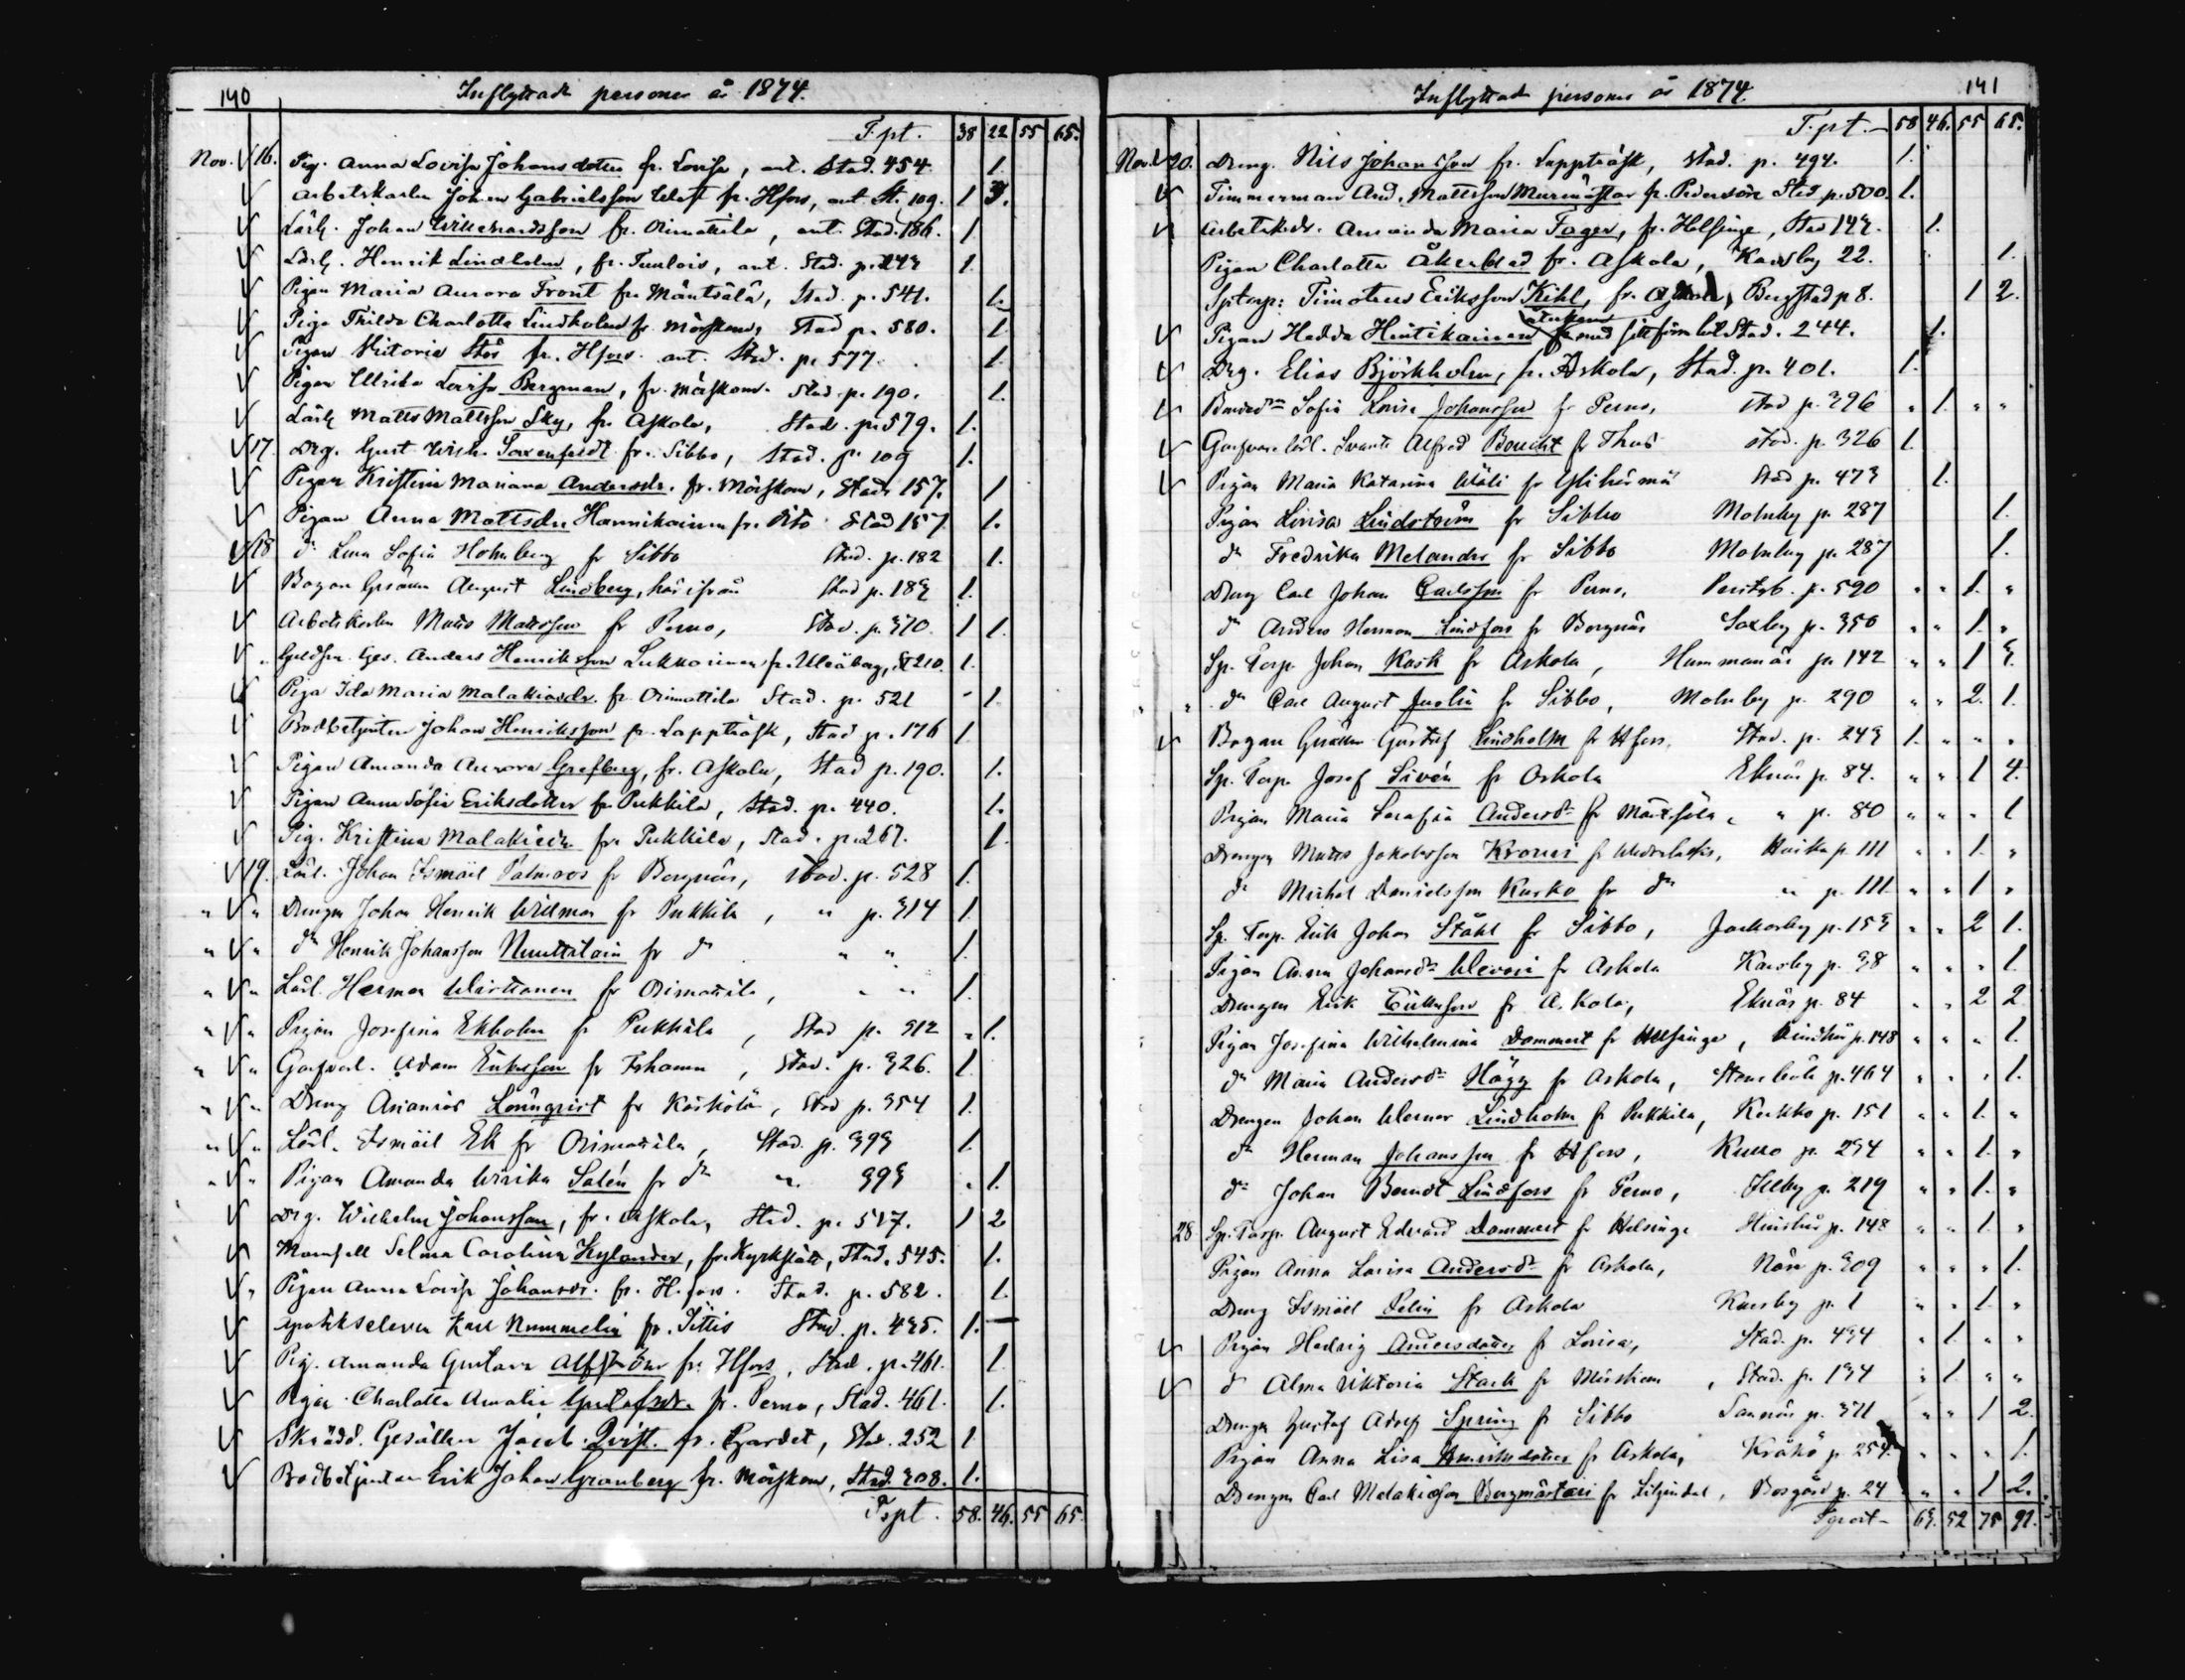 140 Inflyttade personer år 1874.
T.pt. 38 22 55 65.
Nov. 16. Pig. Anna Lovisa Johansdotter fr. Lovisa, ant. Stad. 454 1.
Arbetskarlen Johan Gabrielsson fr. Hfors, ant. St. 109. 1 3.
Lärl. Johan Willehardsson fr. Orimattila, ant. Stad. 186. 1
Lärl. Henrik Lindholm, fr. Tuulois, ant. Stad. p. 243 1.
Pigan Maria Aurora Front fr. Mäntsälä, Stad. p. 541. 1.
Piga Thilda Charlotta Lindholm fr. Mörskom, Stad p. 580. 1
Pigan Victoria Stås fr. Hfors ant. Stad. p. 577. 1.
Pigan Ulrika Lovisa Bergman, fr. Mörskom. Stad. p. 190. 1.
Lärl Matts Mattsson Sky, fr. Askola, Stad. p. 579. 1.
17. Drg. Gust. Wilh. fr. Sibbo, Stad. p. 109 1.
Pigan Kristina Mariana Andersdr. fr. Mörskom, Stad. 157. 1
Pigan Anna Mattsdr Hannikainen fr. Stad 157 1.
18 dn Lena Sofia Holmberg fr Sibbo Stad. p. 182 1.
Bagare Gesällen August Lindberg, härifrån Stad p. 183 1.
Arbetskarlen Matts Mattsson fr Perno, Stad. p. 370. 1 1.
Guldsm. Ges. Anders Henriksson Lukkarinen fr. Uleåborg, St 210. 1.
Piga Ida Maria Malakiasdr. fr. Orimattila Stad. p. 521 - 1.
Bodbetjenten Johan Henriksson fr. Lappträsk, Stad p. 176 1
Pigan Amanda Aurora Grefberg, fr. Askola, Stad p. 190. 1.
Pigan Anna Sofia Eriksdotter fr. Pukkila, Stad. p. 440. 1.
Pig. Kristina Malakiedr fr. Pukkila, Stad. p. 267. 1.
19. Lärl. Johan Ismäil Palmroos fr Borgnäs, Stad. p. 528 1.
" " Drengen Johan Henrik Willman fr Pukkila, " p. 314 1.
" " dn Henrik Johansson fr dn " " 1.
" " Lärl. Herman Wirtanen fr Orimattila, " " 1.
" " Pigan Josefina Ekholm fr Pukkila, Stad p. 312 " 1.
" " Garfvarl. Adam Eriksson fr, Stad. p. 326. 1.
" " Dreng Ananias Lönnqvist fr Kärkölä, Stad p. 354 1.
" " Lärl. Ismäil Ek fr Orimattila, Stad. p. 393 1.
" " Pigan Amanda Ulrika Salén fr dn " 393 " 1.
Drg. Wilhelm Johansson, fr. Askola, Stad. p. 517. 1 2
Mamsell Selma Carolina Kylander, fr. Kyrkslätt, Stad. 545. 1.
" Pigan Anna Lovisa Johansdr. fr. H.fors. Stad. p. 582. 1.
Apothekseleven Karl Nummelin fr. Ittis Stad. p. 435. 1. —
Pig. Amanda Gustava Alfström fr. Hfors, Stad. p. 461. 1.
Pigan Charlotta Amalia Gustafsdr. fr. Perno, Stad. 461. 1.
Skrädd. Gesällen Jacob Qvist. fr., Stad. 252 1
Bodbetjenten Erik Johan Granberg fr. Mörskom, Stad. 308. 1.
T.pt. 58. 46. 55 65.
Inflyttade personer år 1874. 141
T.pt. 58 46. 55 65.
Nov. 20. Dreng. Nils Johansson fr. Lappträsk, Stad. p. 494. 1.
Timmerman And. Mattsson Murmästar fr. Pedersöre Stad p. 500. 1.
Arbetskdr. Amanda Maria Fager, fr. Helsinge, Stad 143. 1.
Pigan Charlotta Åkerblad fr. Askola, Karsby 22. 1.
Sptorp: Timoteus Eriksson Kihl, fr. Askola, Bergstad p 8. 1 2.
Pigan Hedda Hintikainen Stad. 244. 1.
Drg. Elias Björkholm, fr. Askola, Stad. p. 401. 1.
Sofia Lovisa Johansson fr Perno, Stad p. 396 " 1. " "
Garfvare lärl. Svante Alfred Boucht fr Stad. p. 326 1.
Pigan Maria Katarina Wäli fr Ylihärmä Stad p. 473 1.
Pigan Lovisa Lindström fr Sibbo Molnby p. 287 1.
dn Fredrika Melander fr Sibbo Molnby p. 287 1.
Dreng Carl Johan Carlsson fr Perno, p. 590 " " 1. "
dn Anders Herman Lindfors fr Borgnäs Saxby p. 350 " " 1. "
Sp. Torp. Johan Kask fr Askola, Hammanäs p. 142 " " 1 3.
" " dn Carl August Juslin fr Sibbo, Molnby p. 290 " " 2. 1.
Bagare Gesällen Gustaf Lindholm fr Hfors, Stad. p. 243 1. " " "
Sp. Torp. Josef Sivén fr Askola Eknäs p. 84. " " 1 4.
Pigan Maria Serafia Andersdr fr Mäntsälä, " p. 80 " " " 1
Drengen Matts Jakobsson Krouvi fr, Haiko p. 111 " " 1. "
dn Michel Danielsson Kurko fr dn " p. 111. " " 1 "
Sp. Torp. Erik Johan Ståhl fr Sibbo, Jackarby p. 153 " " 2 1.
Pigan Anna Johansdr fr Askola Karsby p. 38 " " " 1.
Drengen Erik Eriksson fr Askola, Eknäs p. 84 " " 2 2
Pigan Josefina Wilhelmina Dammert fr Helsinge, p. 148 " " " 1.
dn Maria Andersdr Hägg fr Askola, Stensböle p. 464 " " " 1.
Drengen Johan Werner Lindholm fr Pukkila, Kerkko p. 151 " " 1. "
dn Herman Johansson fr Hfors, p. 294 " " 1. "
dn Johan Berndt Lindfors fr Perno, Illby p. 219 " " 1. "
28 Sp. Torp. August Edvard Dammert fr Helsinge p. 148 " " 1. "
Pigan Anna Lovisa Andersdr fr Askola, Näse p. 309 " " " 1.
Dreng Ismäel Pelin fr Askola Karsby p. 1 " " 1. "
Pigan Hedvig Andersdotter fr Lovisa, Stad. p. 494 " 1 " "
dn Alma Viktoria Stark fr Mörskom, Stad. p. 194 " 1 " "
Drengen Gustaf Adolf Spring fr Sibbo Sannäs p. 371 " " 1 2.
Pigan Anna Lisa Henriksdotter fr Askola, Kråkö p. 254. " " " 1.
Drengen Carl Malakiasson Bergmästari fr Liljendal, Bosgård p. 24 " " 1 2.
63. 52 75 91.